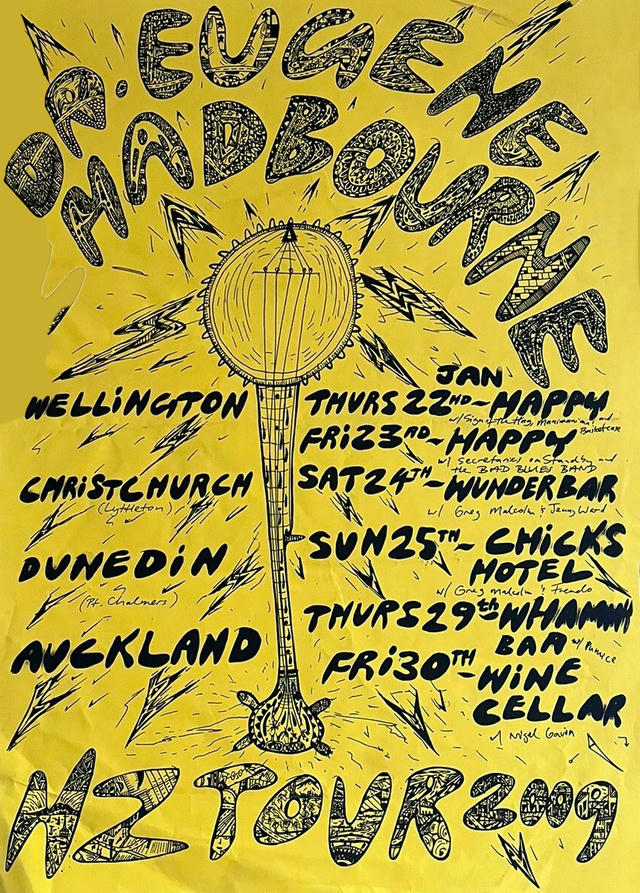 DR. EUGENE
CHADBOURNE
JAN
WELLINGTON THURS 22ND~HAPPY
w/ Sign of the Hag, Mansimanima! and
FRi 23RD~HAPPY
w/ Secretaries on Standby and
the BAD BLUES BAND
CHRiSTCHURCH SAT 24TH~WUNDERBAR
(Lyttleton) w/ Greg Malcolm & Jenny Ward
DUNEDiN SUN 25TH~CHiCKS
HOTEL
(Pt. Chalmers) w/ Greg Malcolm &
AUCKLAND THURS 29th~WHAMMY
BAR w/
FRi 30TH~WiNE
CELLAR
w/ Nigel Gavin
NZ TOUR 2009